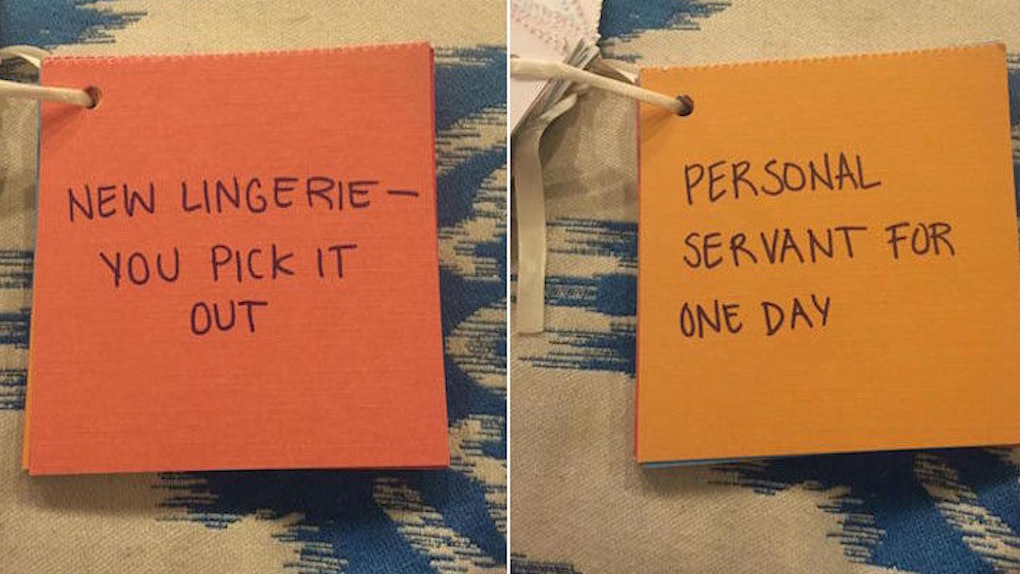 NEW LINGERIE—
YOU PICK IT
OUT
PERSONAL
SERVANT FOR
ONE DAY